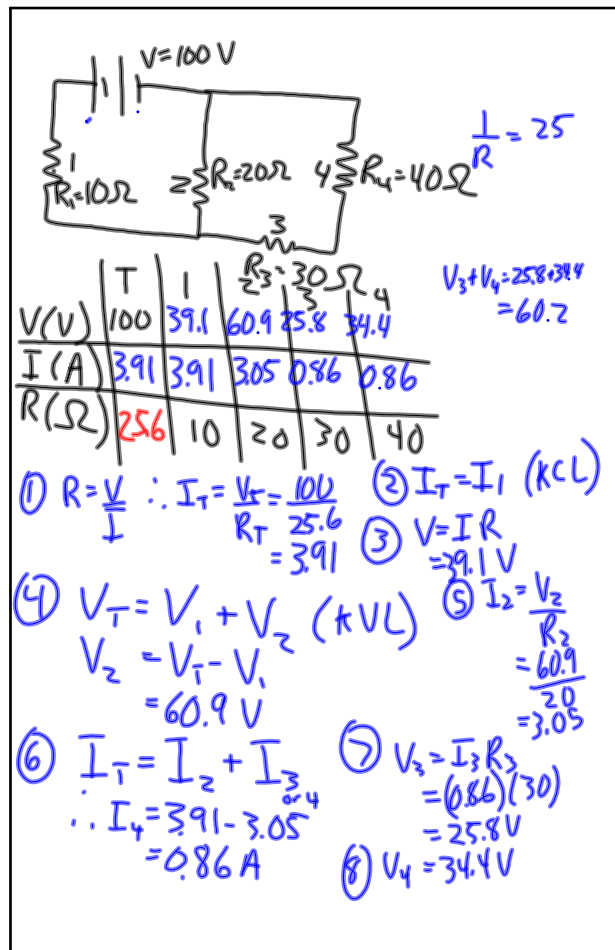 V=100 V
1
R₁=10Ω
2
R₂=20Ω
4
R₄=40Ω
3
R₃=30Ω
1/R = 25
V₃+V₄=25.8+34.4
=60.2
T 1 2 3 4
V(V) 100 39.1 60.9 25.8 34.4
I(A) 3.91 3.91 3.05 0.86 0.86
R(Ω) 25.6 10 20 30 40
① R=V/I ∴ I_T=V_T/R_T=100/25.6
=3.91
② I_T=I₁ (KCL)
③ V=IR
=39.1 V
④ V_T=V₁+V₂ (KVL)
V₂=V_T-V₁
=60.9 V
⑤ I₂=V₂/R₂
=60.9/20
=3.05
⑥ I_T=I₂+I₃ or 4
∴ I₄=3.91-3.05
=0.86 A
⑦ V₃=I₃R₃
=(0.86)(30)
=25.8V
⑧ V₄=34.4V